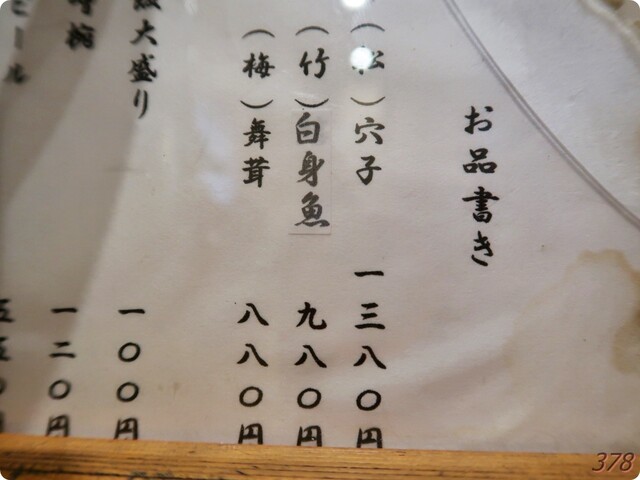 お品書き
（松）穴子 一三八〇円
（竹）白身魚 九八〇円
（梅）舞茸 八八〇円
大盛り 一〇〇円
椀 一二〇円
ール 五五〇円
378